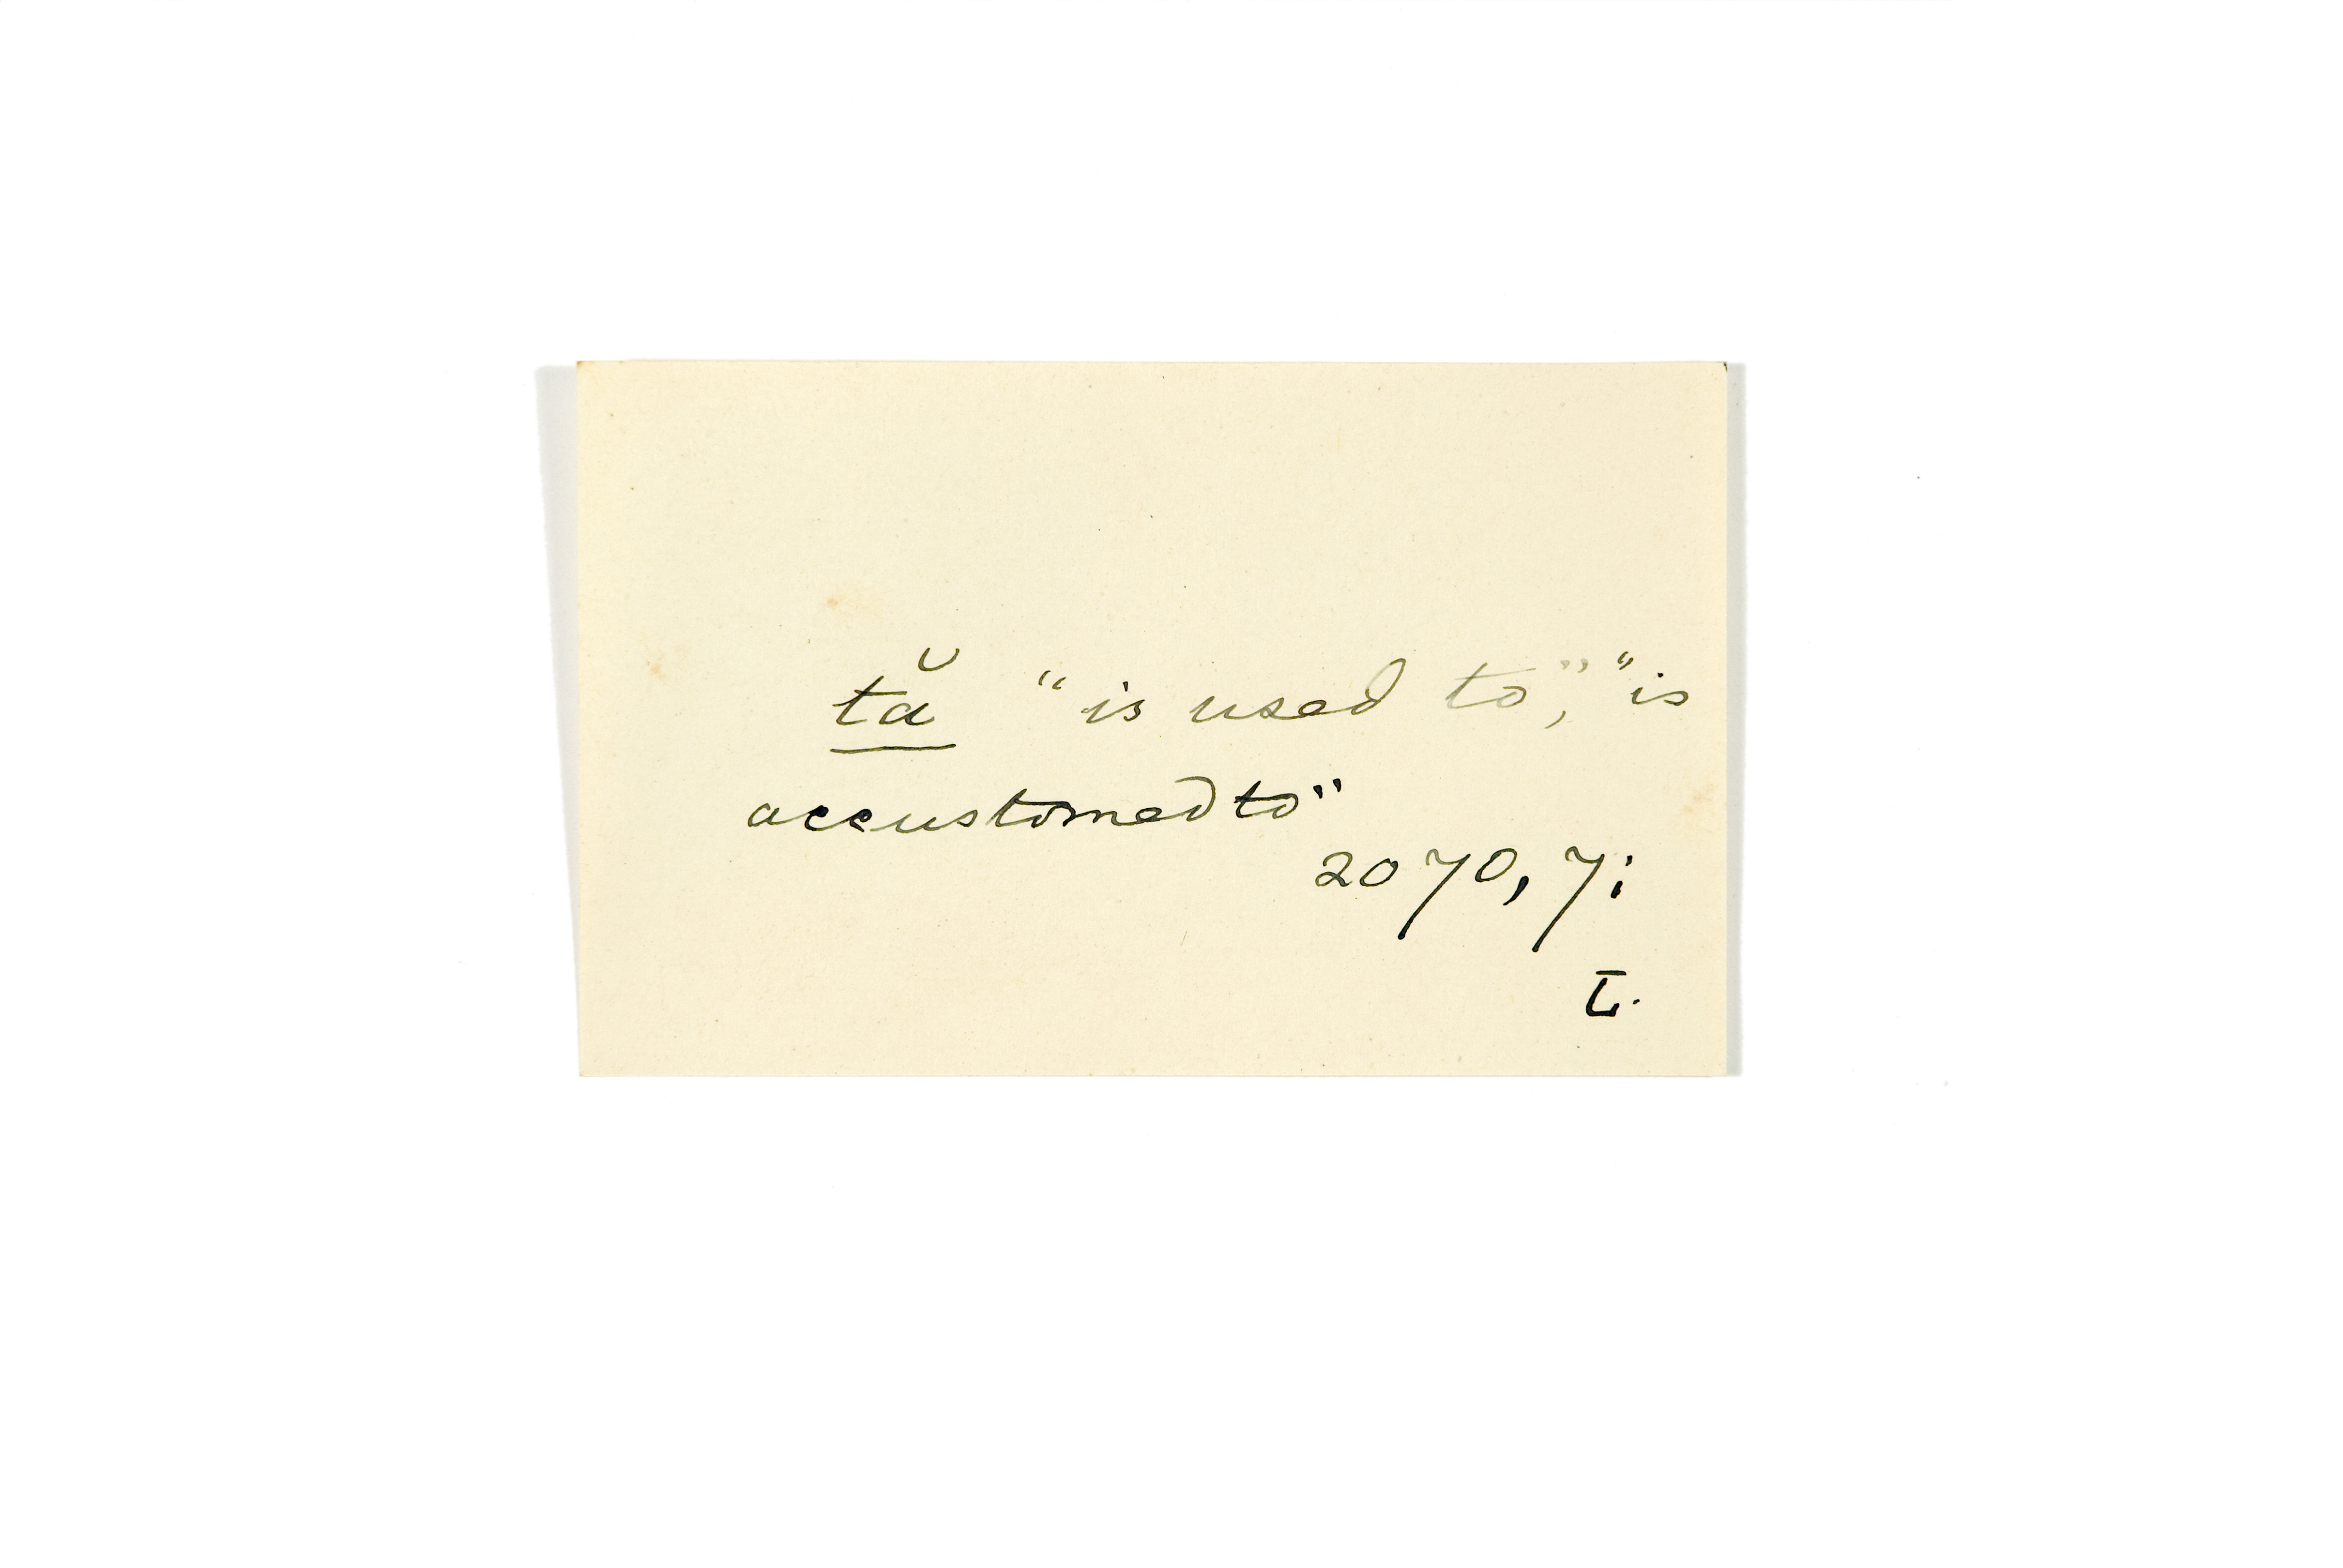 tă "is used to", "is
accustomed to"
2070, 7: